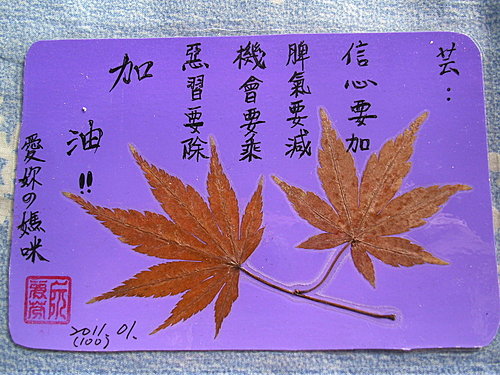 芸：
信心要加
脾氣要減
機會要乘
惡習要除
加
油!!
愛妳の媽咪
2011.01.
(100)